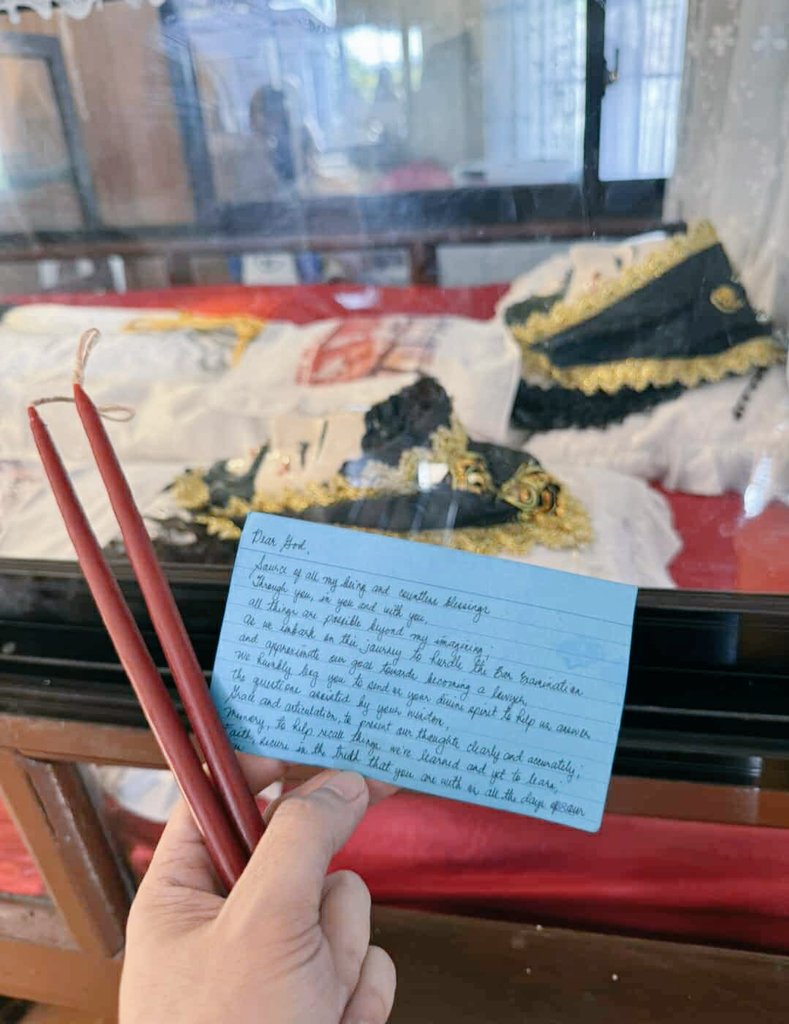 Dear God,
Source of all my being and countless blessings
Through you, in you and with you,
all things are possible beyond my imagining.
As we embark on this journey to hurdle the Bar Examination
and approximate our goal towards becoming a lawyer
We humbly beg you to send us your divine spirit to help us answer
the questions assisted by your wisdom,
Grace and articulation, to present our thoughts clearly and accurately;
Memory, to help recall things we've learned and yet to learn,
Faith, secure in the truth that you are with us all the days of our